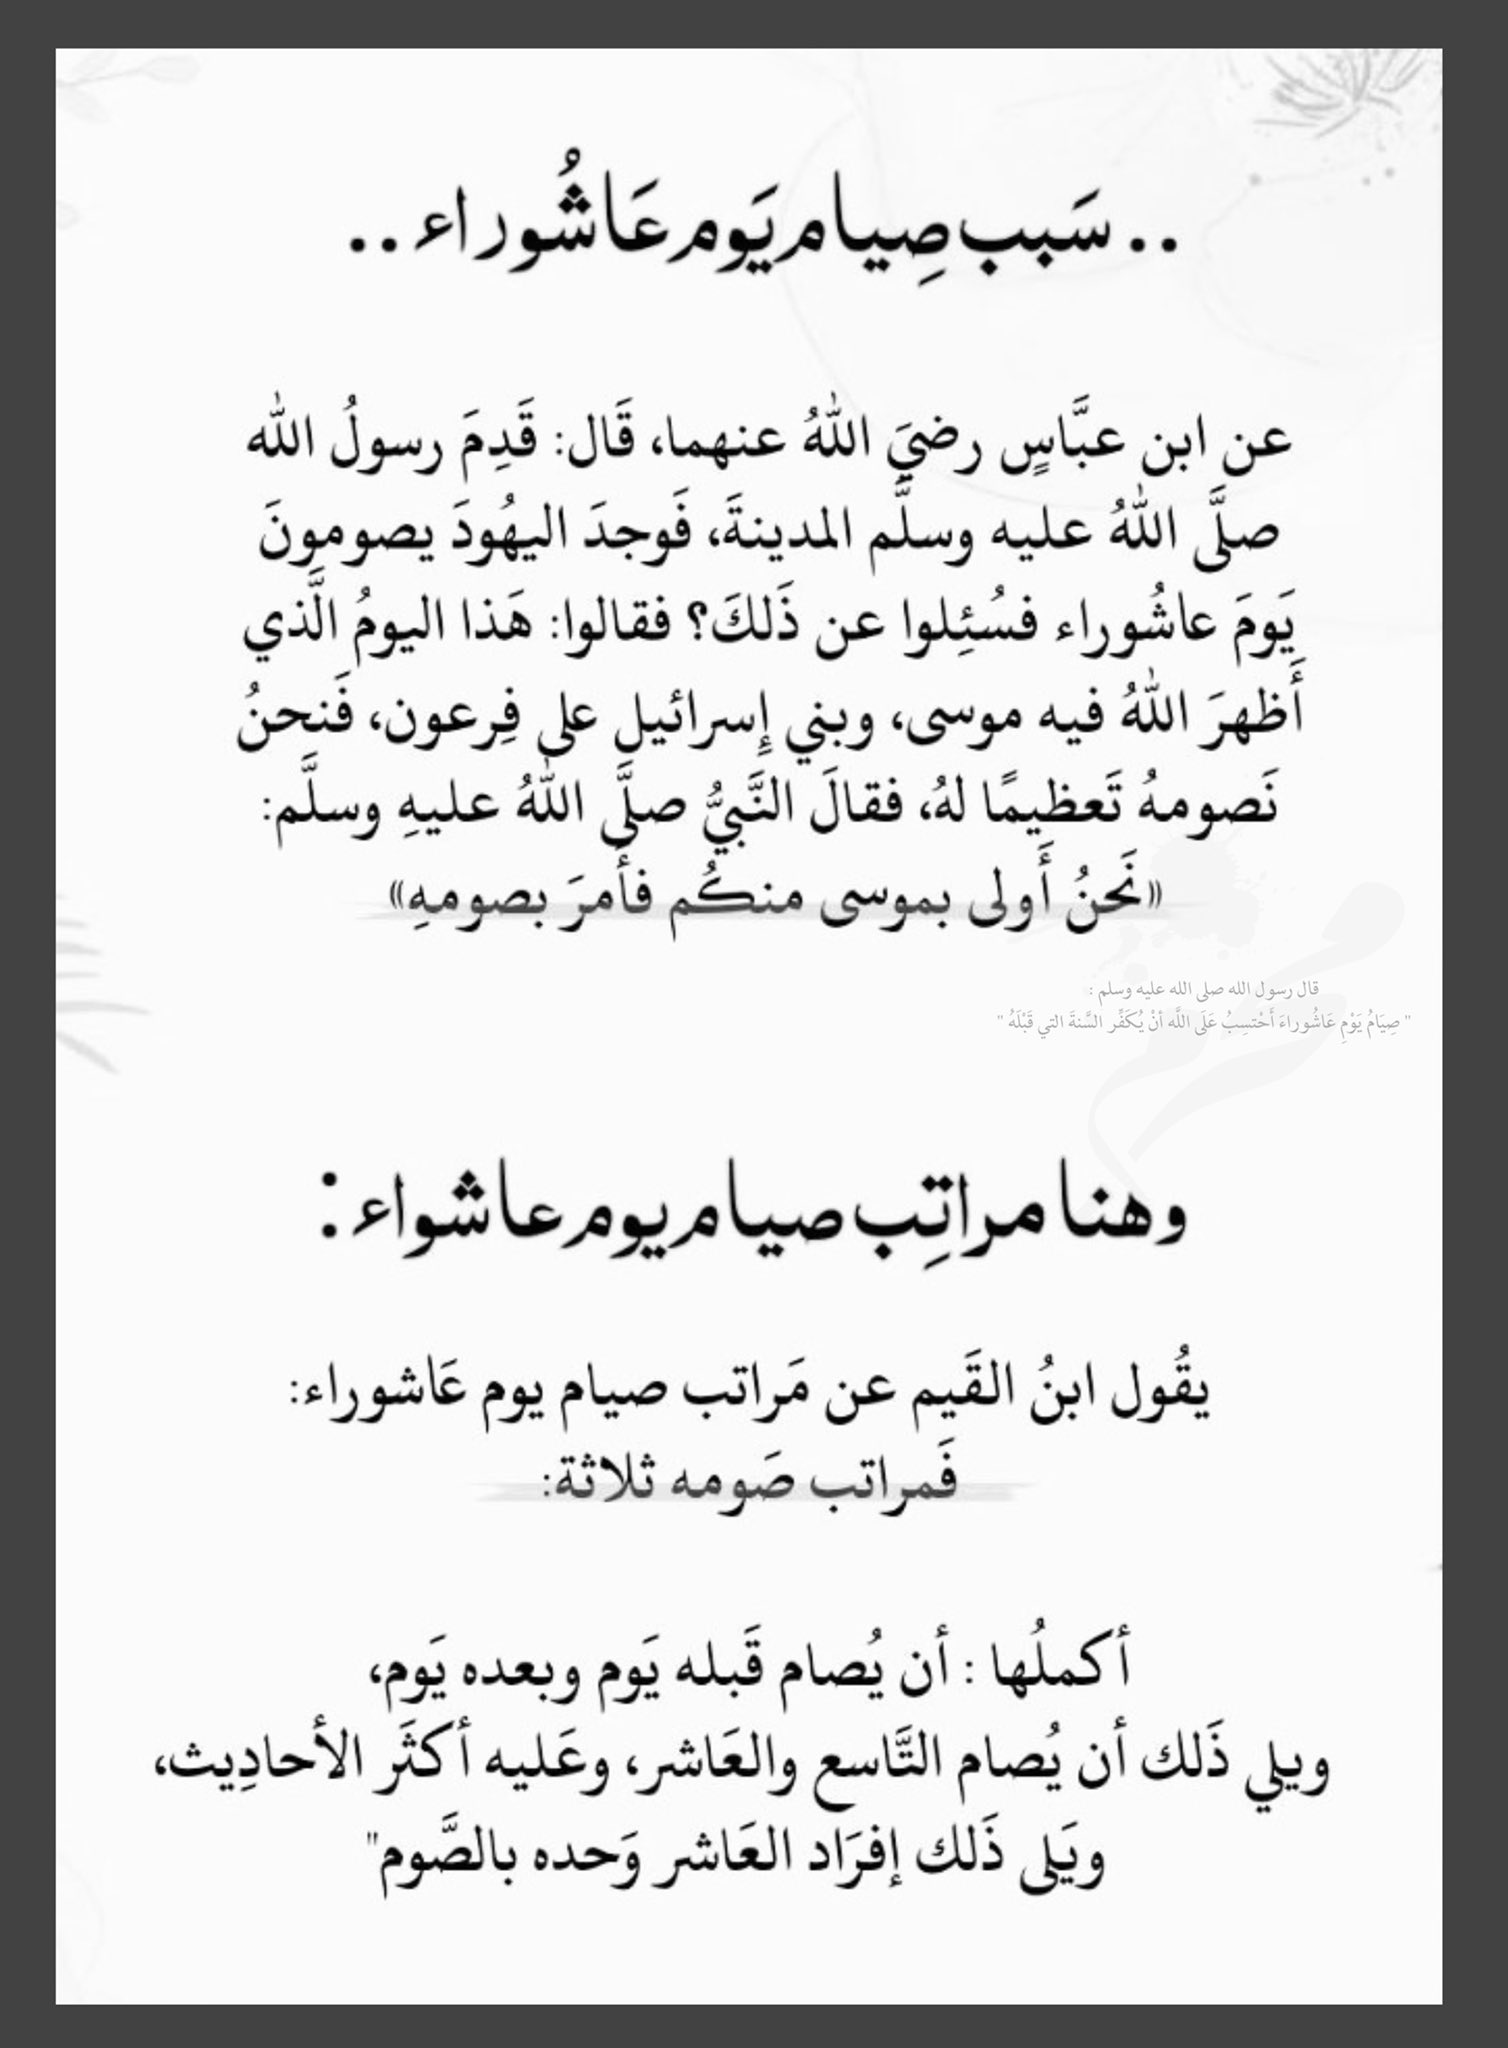 .. سَبب صِيام يَوم عَاشُوراء ..
عن ابن عبَّاسٍ رضيَ اللهُ عنهما، قَال: قَدِمَ رسولُ الله
صلَّى اللهُ عليه وسلَّم المدينةَ، فَوجدَ اليهُودَ يصومونَ
يَومَ عاشُوراء فسُئِلوا عن ذَلكَ؟ فقالوا: هَذا اليومُ الَّذي
أَظهرَ اللهُ فيه موسى، وبني إِسرائيل على فِرعون، فَنحنُ
نَصومهُ تَعظيمًا لهُ، فقالَ النَّبيُّ صلَّى اللهُ عليهِ وسلَّم:
«نَحنُ أَولى بموسى منكُم فأَمرَ بصومهِ»
قال رسول الله صلى الله عليه وسلم :
" صِيَامُ يَوْمِ عَاشُوراءَ أَحْتسِبُ عَلَى اللَّه أنْ يُكَفِّر السَّنةَ التي قَبْلَهُ "
وهنا مراتِب صيام يوم عاشواء :
يقُول ابنُ القَيم عن مَراتب صيام يوم عَاشوراء:
فَمراتب صَومه ثلاثة:
أكملُها : أن يُصام قَبله يَوم وبعده يَوم،
ويلي ذَلك أن يُصام التَّاسع والعَاشر، وعَليه أكثَر الأحادِيث،
ويَلى ذَلك إفرَاد العَاشر وَحده بالصَّوم"
محرم